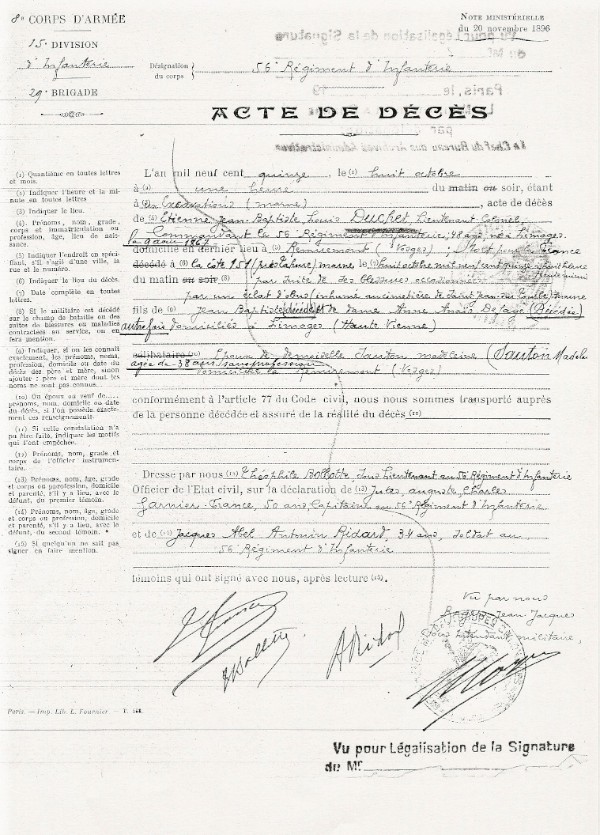 8e CORPS D'ARMÉE
15e DIVISION
d'Infanterie
29e BRIGADE
NOTE MINISTÉRIELLE
du 20 novembre 1896
Vu pour Légalisation de la Signature
de Mr
Paris, le 19
par
Le Chef du Bureau des Archives Administratives
Désignation du corps
56e Régiment d'Infanterie
ACTE DE DÉCÈS
(1) Quantième en toutes lettres et mois.
(2) Indiquer l'heure et la minute en toutes lettres.
(3) Indiquer le lieu.
(4) Prénoms, nom, grade, corps et immatriculation ou profession, âge, lieu de naissance.
(5) Indiquer l'endroit en spécifiant, s'il s'agit d'une ville, la rue et le numéro.
(6) Indiquer le lieu du décès.
(7) Date complète en toutes lettres.
(8) Si le militaire est décédé sur le champ de bataille ou des suites de blessures ou maladies contractées en service, on en fera mention.
(9) Indiquer, si on les connaît exactement, les prénoms, noms, profession, domicile ou date de décès des père et mère, sinon ajouter : père et mère dont les noms ne sont pas connus.
(10) Ou époux ou veuf de.... prénoms, nom, domicile ou date du décès, si l'on possède exactement ces renseignements.
(11) Si celle constatation n'a pu être faite, indiquer les motifs qui l'ont empêchée.
(12) Prénoms, nom, grade et corps de l'officier instrumentaire.
(13) Prénoms, nom, âge, grade et corps ou profession, domicile et parenté, s'il y a lieu, avec le défunt, du premier témoin.
(14) Prénoms, nom, âge, grade et corps ou profession, domicile et parenté, s'il y a lieu, avec le défunt, du second témoin.
(15) Si quelqu'un ne sait pas signer en faire mention.
L'an mil neuf cent quinze le (1) huit octobre
à (2) une heure du matin ou soir, étant
à (3) Excavations (marne) acte de décès
de (4) Etienne Jean Baptiste Louis Duchet, Lieutenant Colonel
Commandant le 56e Régiment d'Infanterie, 48 ans, né à Limoges
domicilié en dernier lieu à (5) Remiremont (Vosges) ; Mort pour la France
décédé à (6) la côte 151 (près Tahure) marne le
du matin ou soir (8) par suite de ses blessures occasionnées
par un éclat d'obus (inhumé au cimetière de Saint Jean sur Tourbe) marne
fils de (9) Jean Baptiste décédé et de dame Anne Anaïs (Décédés)
autrefois domiciliés à Limoges (Haute Vienne)
célibataire (10) Epoux de demoiselle Sauton madeleine (Sauton
agée de 38 ans sans profession
domiciliée à Remiremont (Vosges)
conformément à l'article 77 du Code civil, nous nous sommes transporté auprès
de la personne décédée et assuré de la réalité du décès (11)
Dressé par nous (12) Théophile Bollotte, Sous Lieutenant au 56e Régiment d'Infanterie
Officier de l'Etat civil, sur la déclaration de (13) Jules, auguste, Charles
Garnier-France, 50 ans, Capitaine au 56e Régiment d'Infanterie
et de (14) Jacques Abel Antonin Ridard, 34 ans, soldat au
56e Régiment d'Infanterie
témoins qui ont signé avec nous, après lecture (15).
Vu par nous
Jean-Jacques
Sous Intendant militaire,
Paris. — Imp. Lib. L. Fournier
Vu pour Légalisation de la Signature
de Mr